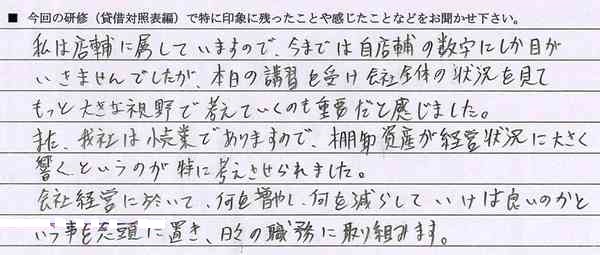 ■ 今回の研修（貸借対照表編）で特に印象に残ったことや感じたことなどをお聞かせ下さい。
私は店舗に属していますので、今までは自店舗の数字にしか目が
いきませんでしたが、本日の講習を受け会社全体の状況を見て
もっと大きな視野で考えていくのも重要だと感じました。
また、我社は小売業でありますので、棚卸資産が経営状況に大きく
響くというのが特に考えさせられました。
会社経営に於いて、何を増やし、何を減らしていけば良いのかと
いう事を念頭に置き、日々の職務に取り組みます。